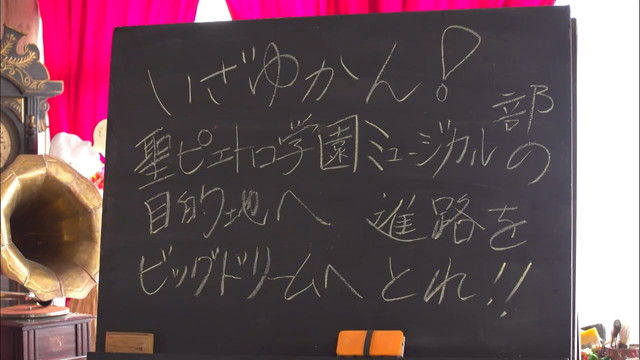 いざゆかん!
聖ピエトロ学園ミュージカル部の
目的地へ 進路を
ビッグドリームへ とれ!!